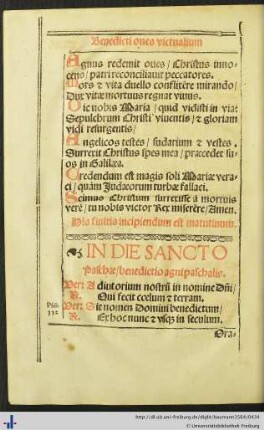 Benedicti oues victualium
Agnus redemit oues / Christus inno-
cens / patri reconciliauit peccatores.
Mors & vita duello conflixere mirando /
Dux vitæ mortuus regnat viuus.
Dic nobis Maria / quid vidisti in via:
Sepulchrum Christi viuentis / & gloriam
vidi resurgentis /
Angelicos testes / sudarium & vestes.
Surrexit Christus spes mea / præcedet su-
os in Galilæa.
Credendum est magis soli Mariæ vera-
ci / quàm Iudæorum turbæ fallaci.
Scimus Christum surrexisse à mortuis
verè / tu nobis victor Rex miserère / Amen.
His finitis incipiendum est matutinum.
IN DIE SANCTO
Paschæ / benedictio agni paschalis.
Ver: Adiutorium nostrū in nomine Dñi /
R. Qui fecit cœlum & terram.
Psal. Ver: Sit nomen Domini benedictum /
112 R. Ex hoc nunc & vsq; in seculum.
Ora-
http://dl.ub.uni-freiburg.de/diglit/baumann1584/0434
© Universitätsbibliothek Freiburg